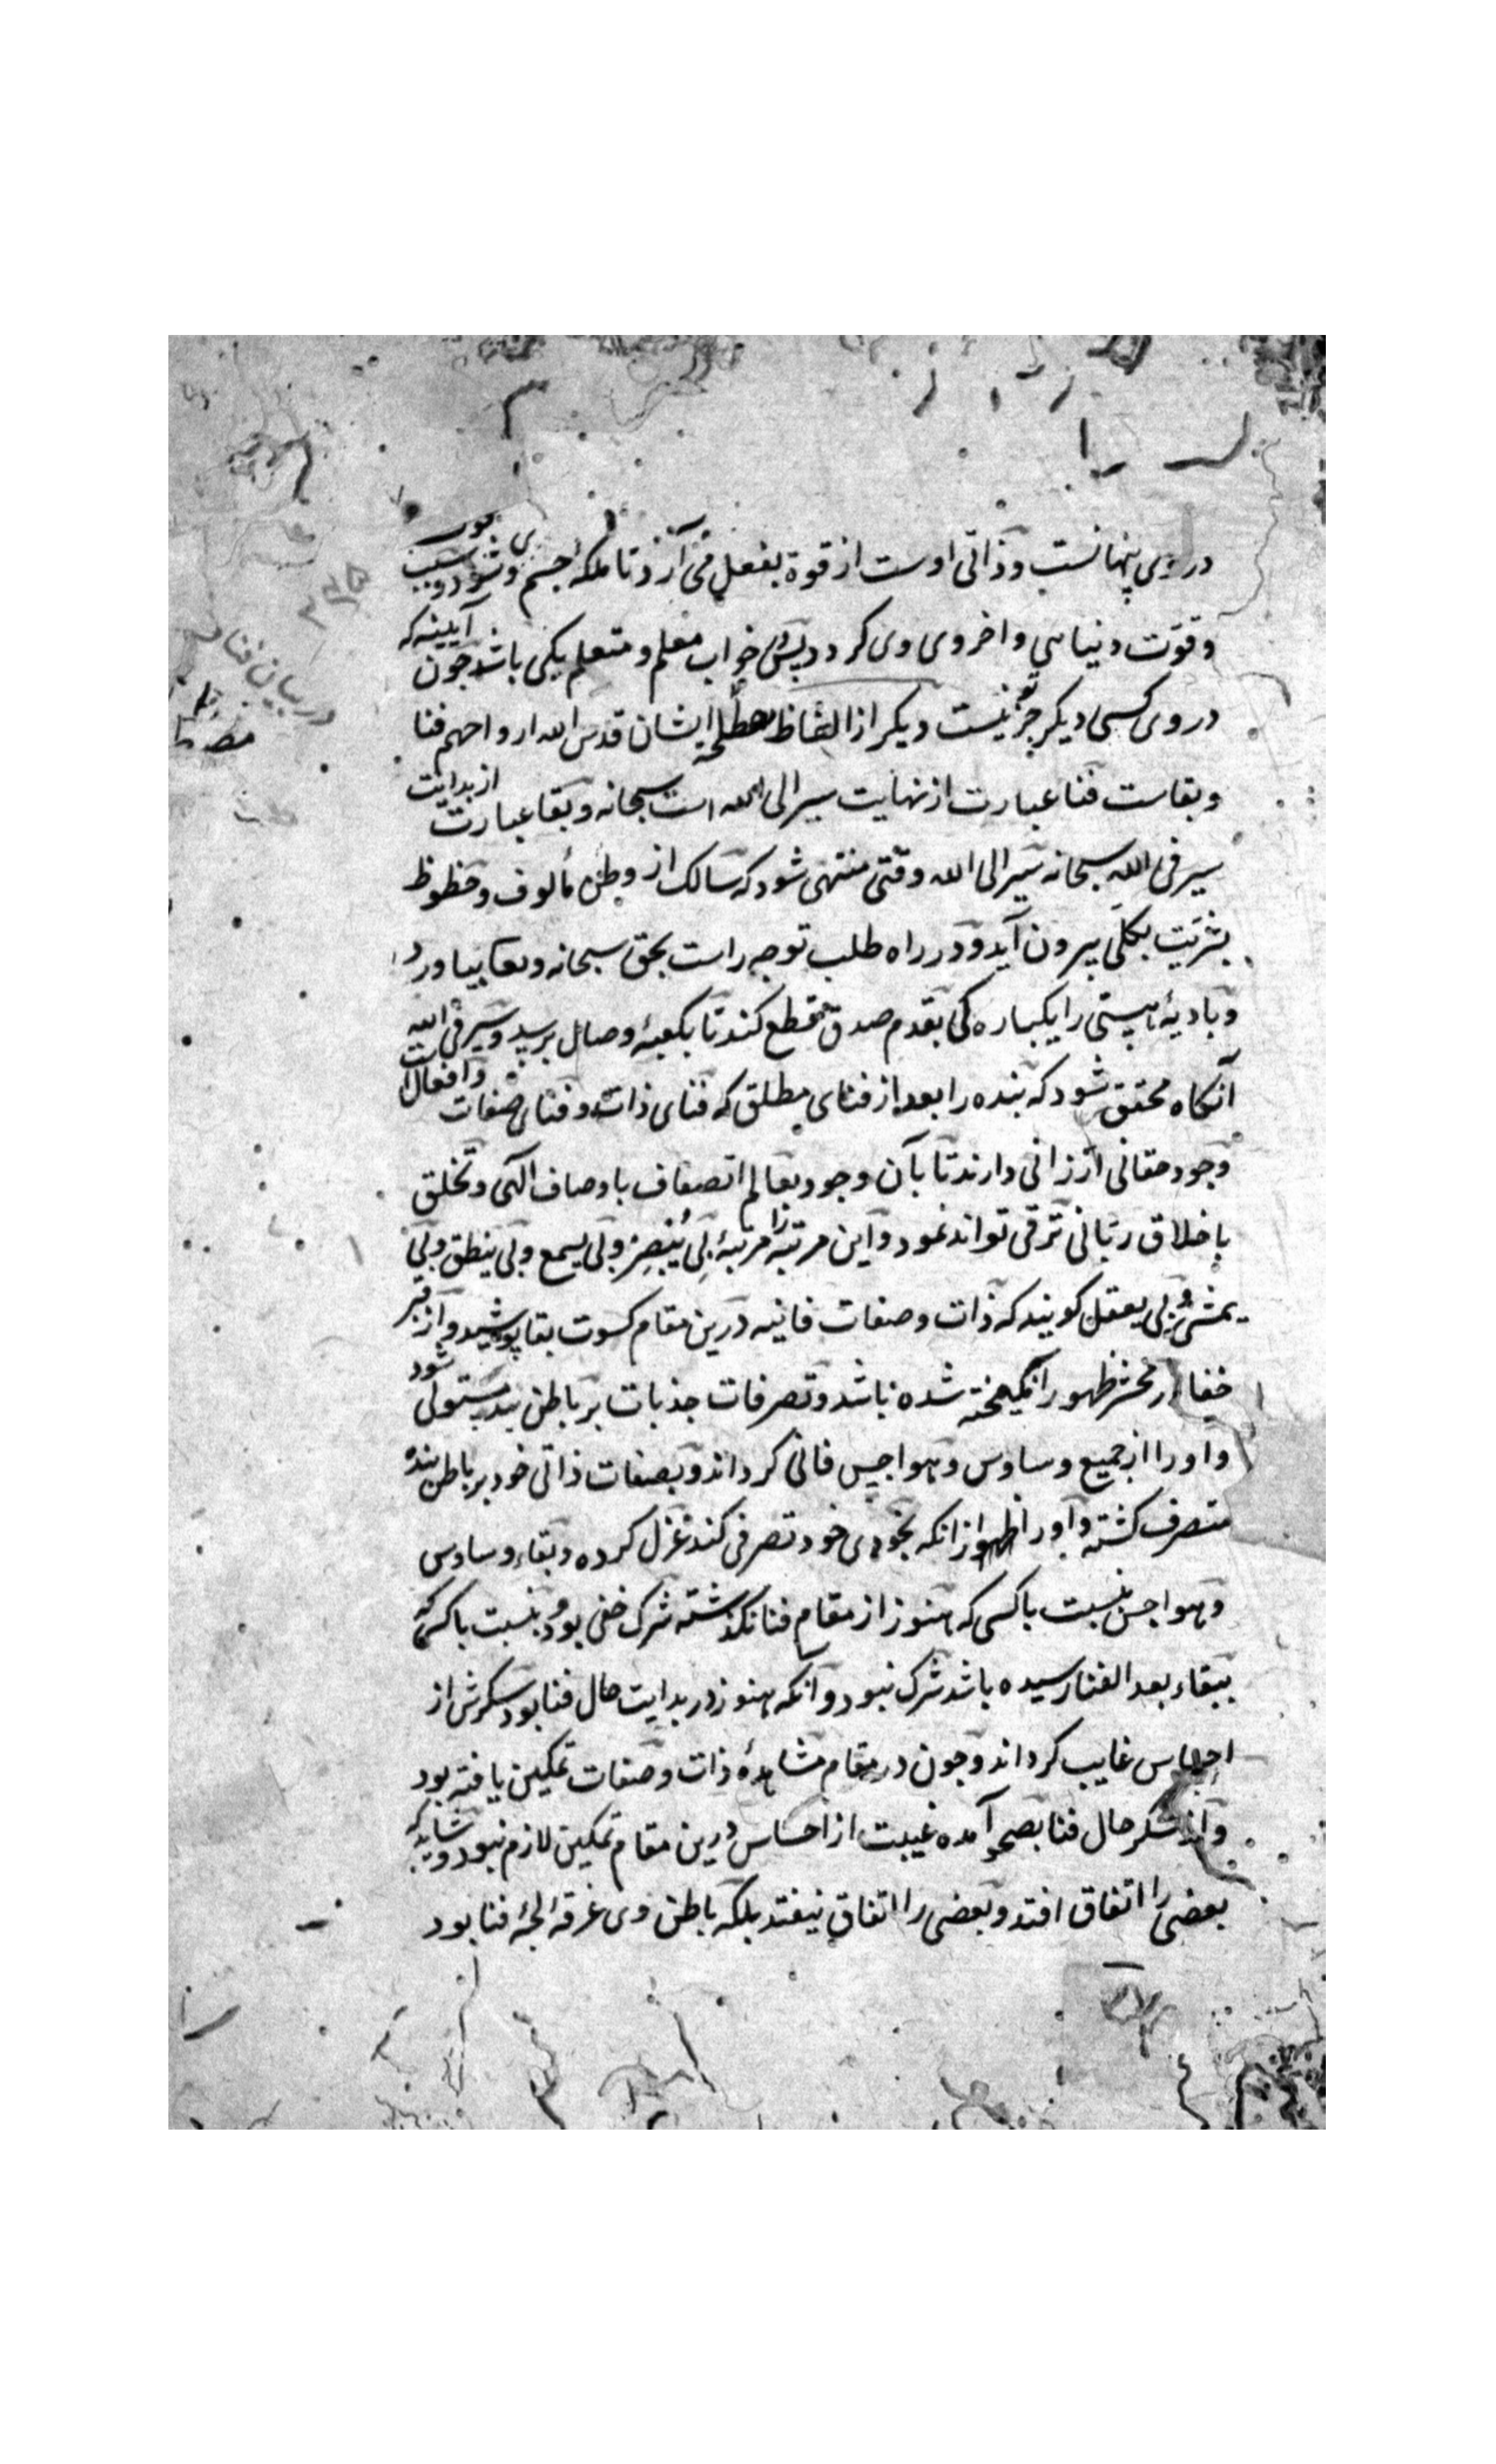 در وی پنهانست و ذاتی اوست از قوة بفعل می آرد تا ملکه جسم وی شود و سبب
و قوّت دنیاسی و اخروی وی کردد پس در خواب معلم و متعلم یکی باشد چون آیینه که
در وی کسی دیکر جز تو نیست دیکر از الفاظ مصطلحهٔ ایشان قدس الله ارواحهم فنا
و بقاست فنا عبارت از نهایت سیر الی الله است سبحانه و بقا عبارت از بدایت
سیر فی الله سبحانه سیر الی الله وقتی منتهی شود که سالک از وطن مألوف و حظوظ
بشریّت بکلّی بیرون آید و در راه طلب توجه راست بحق سبحانه و تعالی بیاورد
و بادیهٔ هستی را یکباره کی بقدم صدق قطع کند تا بکعبهٔ وصال برسد و سیر فی الله
آنکاه محقق شود که بنده را بعد از فنای مطلق که فنای ذات و فنای صفات و افعال است
وجود حقانی ارزانی دارند تا بآن وجود بعالم اتصاف باوصاف الهی و تخلق
باخلاق ربّانی ترقی تواند نمود و این مرتبه را مرتبهٔ بی یبصر و بی یسمع و بی ینطق و بی
یمشی و بی یعقل کویند که ذات و صفات فانیه درین مقام کسوت بقا پوشید و از قبر
خفا در محشر ظهور انکیخته شده باشد و تصرفات جذبات بر باطن بنده مستولی شود
و او را از جمیع وساوس و هواجس فانی کرداند و بصفات ذاتی خود بر باطن بنده
متصرف کشته و او را از انکه بخودی خود تصرفی کند عزل کرده و بقاء وساوس
و هواجس نسبت باکسی که هنوز از مقام فنا نکذشته شرک خفی بود و نسبت باکسی که
ببقاء بعد الفنا رسیده باشد شرک نبود و آنکه هنوز در بدایت حال فنا بود سکرش از
احساس غایب کرداند و چون در مقام مشاهدهٔ ذات و صفات تمکین یافته بود
و از سکر حال فنا بصحو آمده غیبت از احساس درین مقام تمکین لازم نبود و شاید که
بعضی را اتفاق افتد و بعضی را اتفاق نیفتد بلکه باطن وی غرقه لجهٔ فنا بود
در بیان فنا